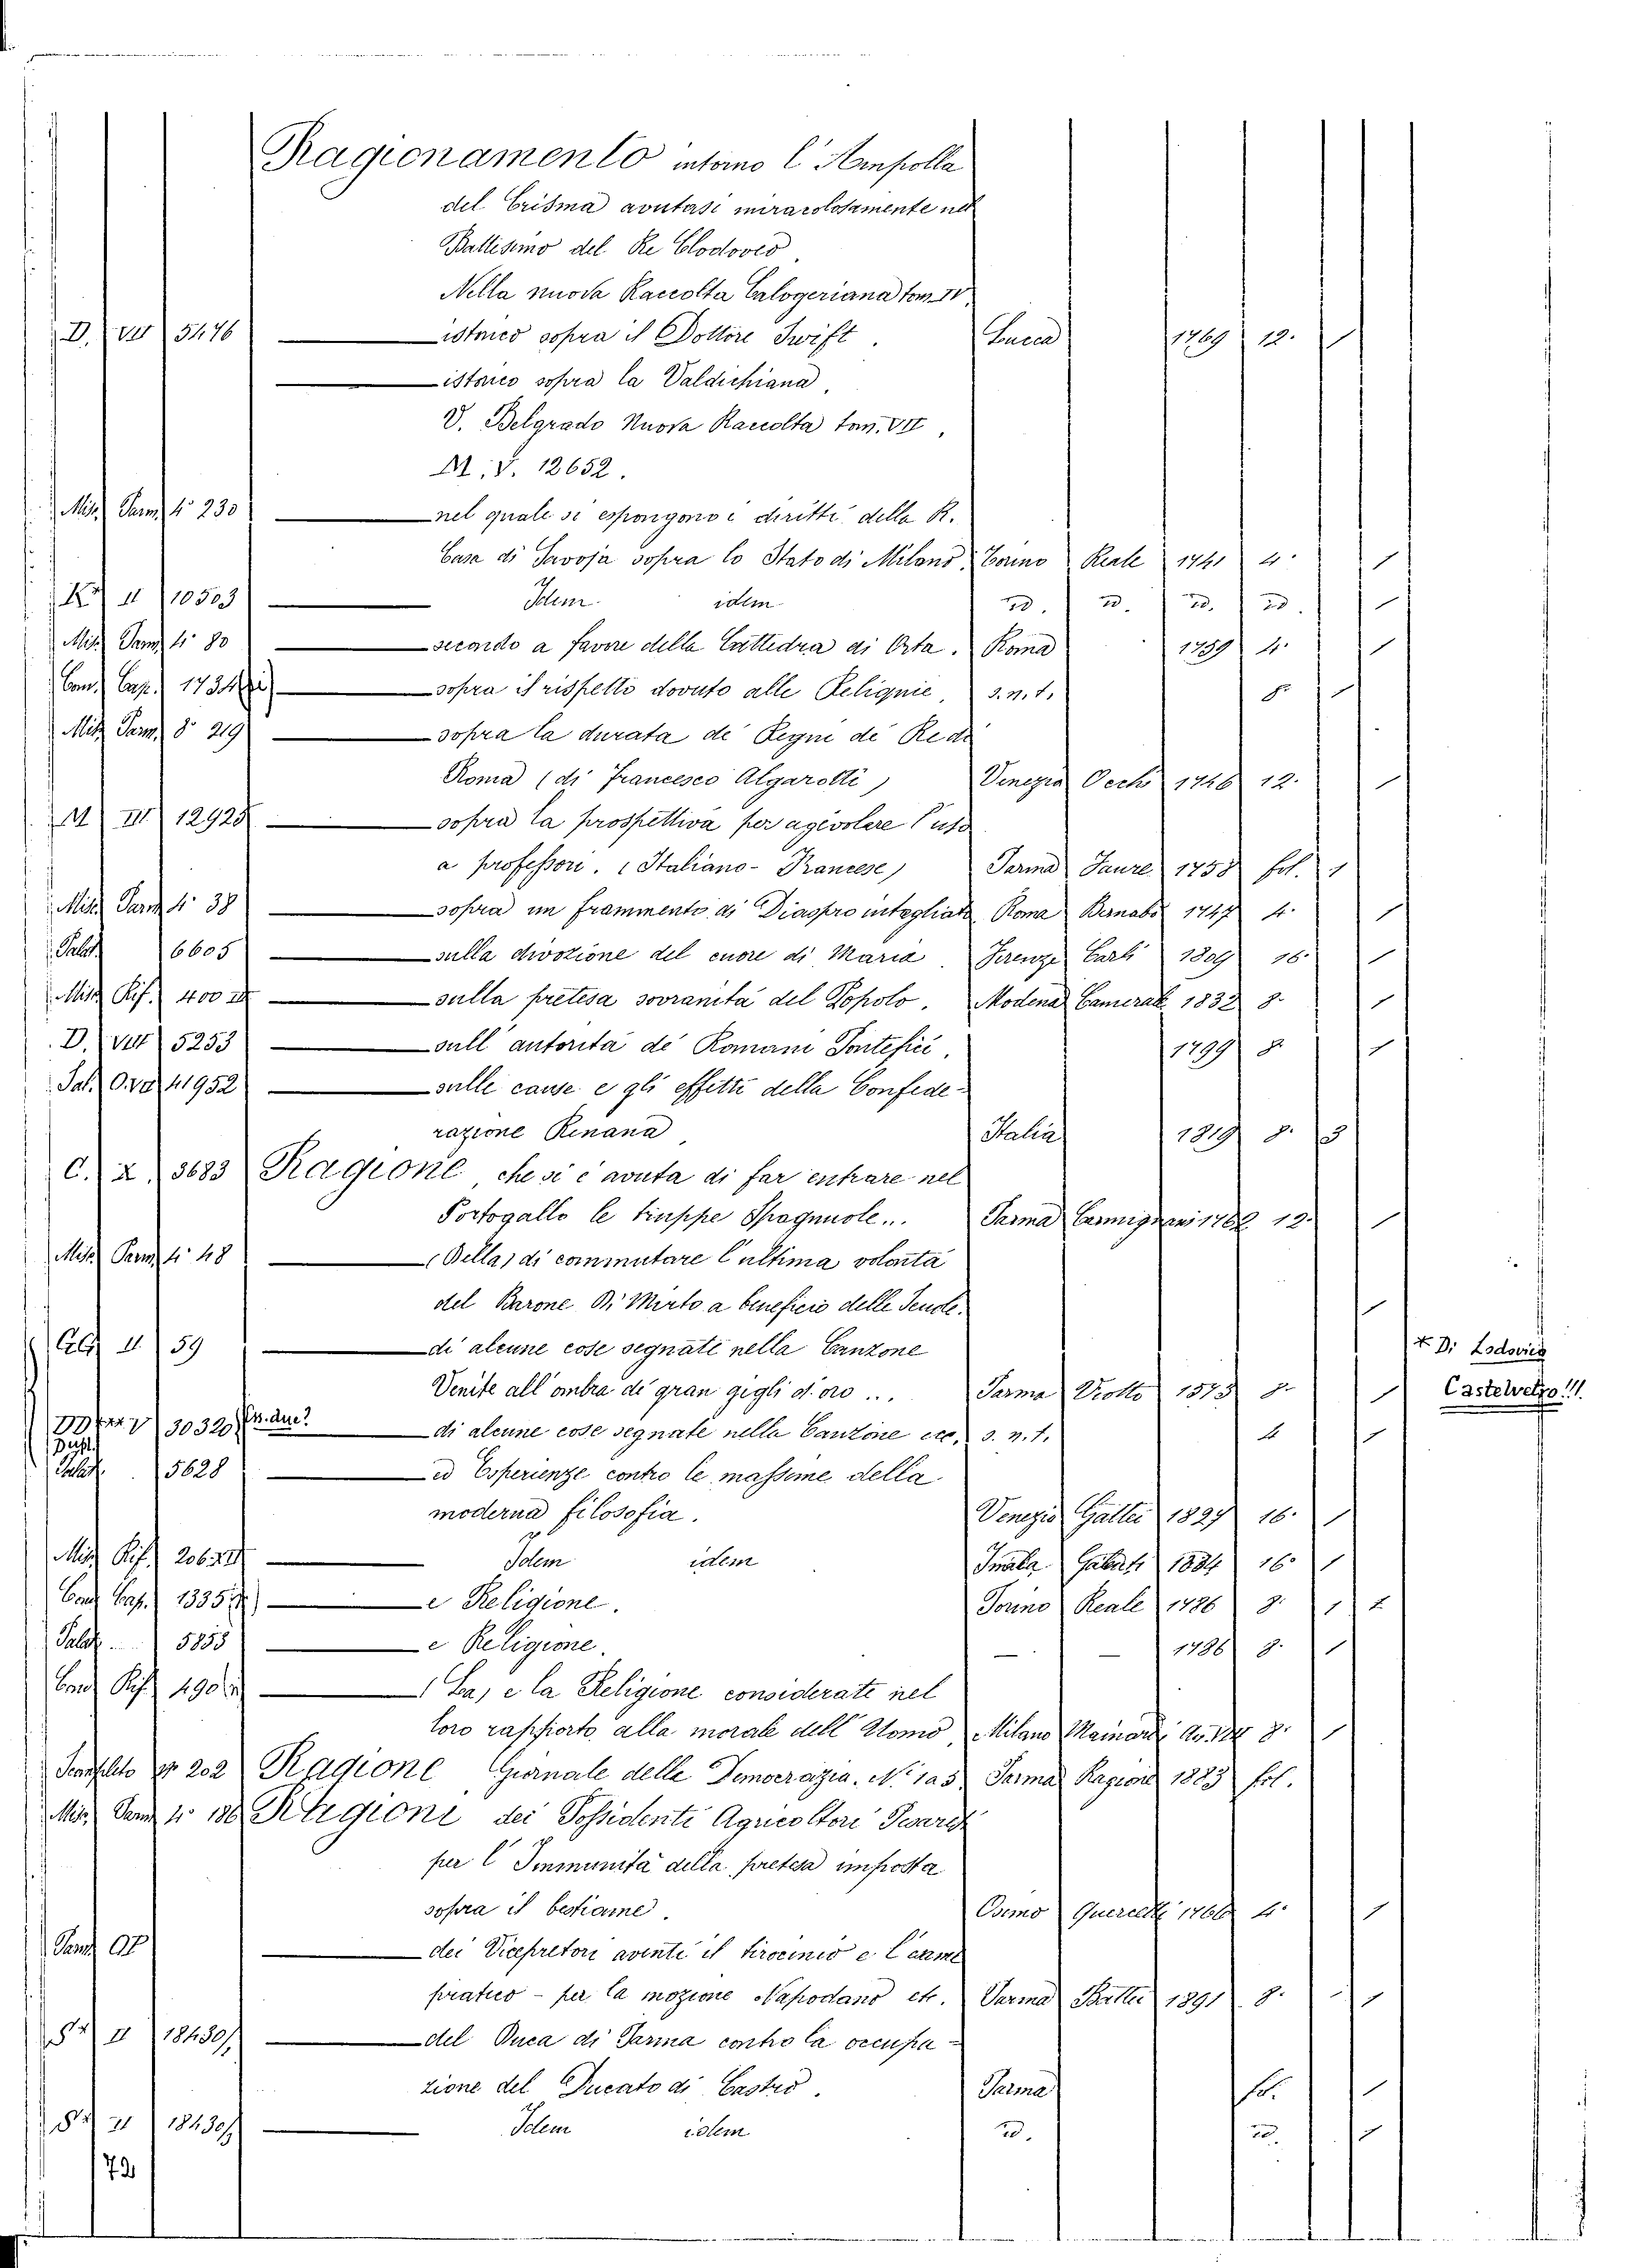 Ragionamento intorno l'Ampolla
del Crisma avutasi miracolosamente nel
Battesimo del Re Clodoveo.
Nella nuova Raccolta Calogeriana tom. IV.
D. VIII 5476 — istorico sopra il Dottore Swift. Lucca 1769 12. 1
— istorico sopra la Valdichiana,
V. Belgrado Nuova Raccolta tom. VII,
M. V. 12652.
Misc. Parm. 4° 230 — nel quale si espongono i diritti della R.
Casa di Savoja sopra lo Stato di Milano, Torino Reale 1741 4° 1
K II 10503 — Idem idem id. id. id. id. 1
Misc. Parm. 4° 80 — secondo a favore della Cattedra di Orta. Roma 1759 4. 1
Con. Cap. 1734 — sopra il rispetto dovuto alle Reliquie, s.n.t. 8° 1
Misc. Parm. 8° 219 — sopra la durata de' Regni de' Re di
Roma (di Francesco Algarotti) Venezia Occhi 1746 12. 1
M III 12925 — sopra la prospettiva per agevolere l'uso
a professori. (Italiano-Francese) Parma Faure 1758 fol. 1
Misc. Parm. 4° 38 — sopra un frammento di Diaspro intagliato Roma Bernabò 1747 4. 1
Palat. 6605 — sulla divozione del cuore di Maria. Firenze Carli 1809 16. 1
Misc. Rif. 400 — sulla pretesa sovranità del Popolo. Modena Camerale 1832 8. 1
D. VIII 5253 — sull'autorità de' Romani Pontefici, 1799 8. 1
Sal. O. 41952 — sulle cause e gli effetti della Confede-
razione Renana, Italia 1819 8. 3
C. X. 3683 Ragione, che si è avuta di far entrare nel
Portogallo le truppe Spagnuole... Parma Carmignani 1762 12. 1
Misc. Parm. 4° 48 — (Della) di commutare l'ultima volontà
del Barone Di Mirto a beneficio delle Scuole. 1
II 59 — di alcune cose segnate nella Canzone * Di Lodovico
Venite all'ombra de' gran gigli d'oro... Parma Viotto 1573 8. 1 Castelvetro!!!
V 30320 Es. due? — di alcune cose segnate nella Canzone ecc. s.n.t. 4 1
Palat. 5628 — ed Esperienze contro le massime della
moderna filosofia. Venezia Gattei 1827 16. 1
Misc. Rif. 206 — Idem idem Imola Galeati 1834 16. 1
Con. Cap. 1335 — e Religione. Torino Reale 1786 8. 1
Palat. 5855 — e Religione. — — 1786 8. 1
Cons. Rif. 490 — (La) e la Religione considerate nel
loro rapporto alla morale dell'Uomo, Milano Mainardi 8. 1
202 Ragione Giornale delle Democrazia. N. 1 a 5 Parma Ragione 1883 fol.
Misc. Parm. 4° 186 Ragioni dei Possidenti Agricoltori Pesaresi
per l'Immunità della pretesa imposta
sopra il bestiame. Osimo Quercetti 4° 1
— dei Vicepretori aventi il tirocinio e l'esame
pratico - per la mozione Napodano etc. Parma Battei 1891 8. 1
II 18430/1 — del Duca di Parma contro la occupa-
zione del Ducato di Castro. Parma fol. 1
II 18430/1 — Idem idem id. id. 1
72